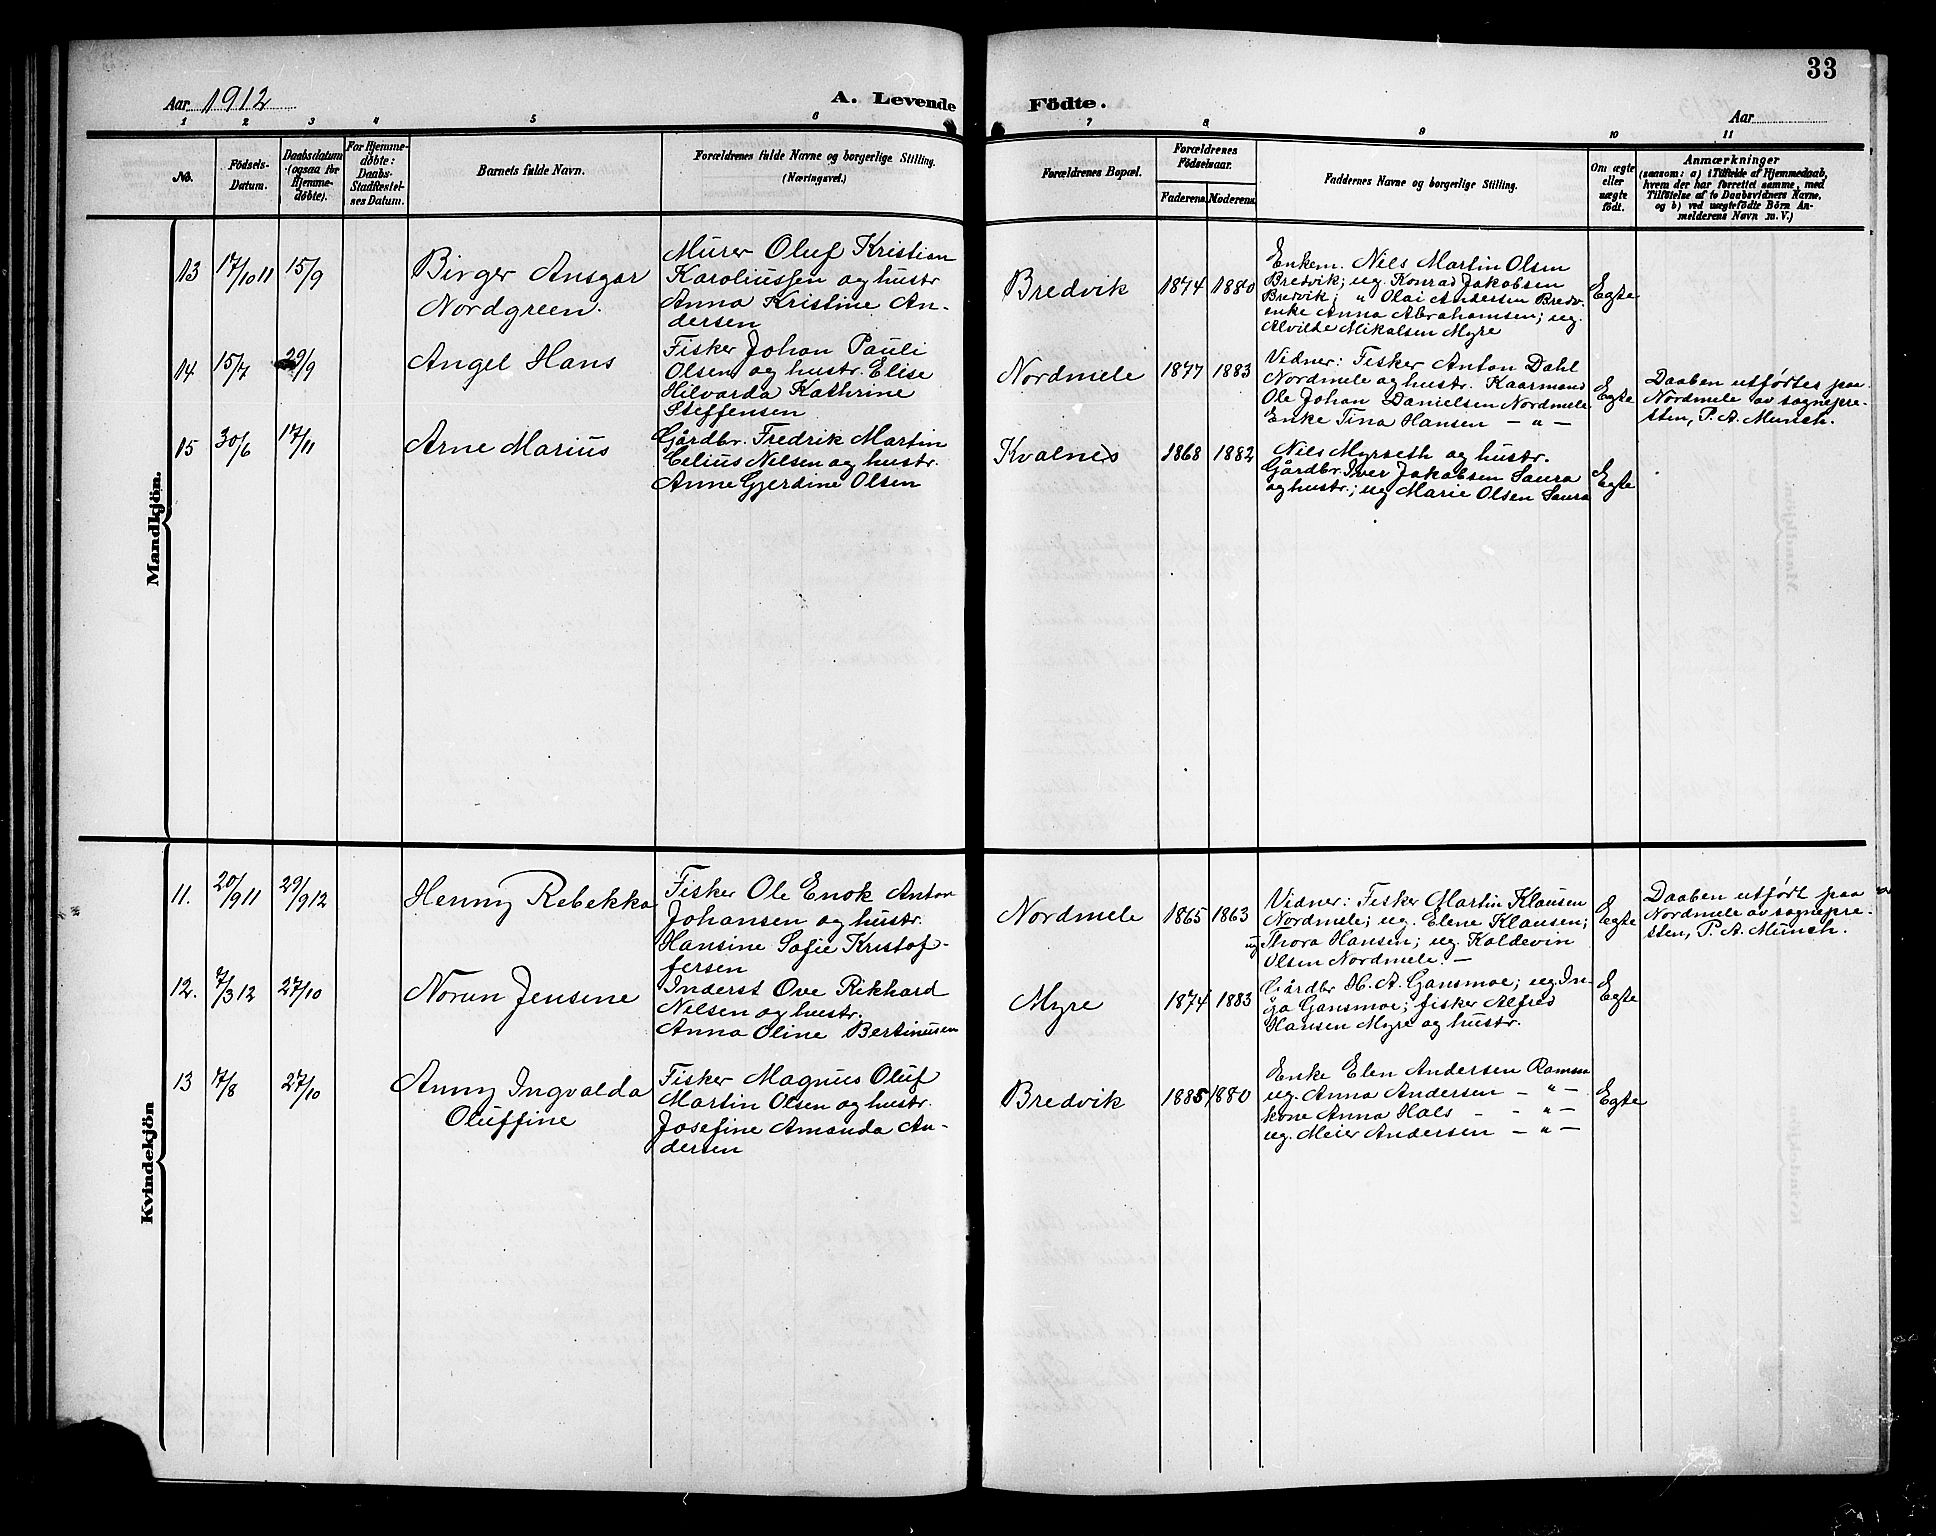 33
Aar 1912
A. Levende Födte.
Aar
1 2 3 4 5 6 7 8 9 10 11
No.
Födsels-
Datum.
Daabsdatum
(ogsaa for
Hjemme-
döbte).
For Hjemme-
döbte:
Daabs-
Stadfæstel-
ses Datum.
Barnets fulde Navn.
Forældrenes fulde Navne og borgerlige Stilling.
(Næringsvei.)
Forældrenes Bopæl.
Forældrenes
Födselsaar.
Faderens. Moderens.
Faddernes Navne og borgerlige Stilling.
Om ægte
eller
uægte
födt.
Anmærkninger
(saasom: a) i Tilfælde af Hjemmedaab,
hvem der har forrettet samme, med
Tilföielse af to Daabsvidners Navne,
og b) ved uægtefödte Börn An-
melderens Navn m. V.)
Mandkjön.
13 17/10 11 15/9
Birger Ansgar
Nordgreen.
Murer Oluf Kristian
Karoliussen og hustr
Anna Kristine An-
dersen
Bredvik 1874 1880
Enkem. Nils Martin Olsen
Bredvik; ug. Konrad Jakobsen
Bredvik; " Olai Andersen Bredv.
enke Anna Abrahamsen; ug.
Alvilde Mikalsen Myre
Egte
14 15/7 29/9
Angel Hans
Fisker Johan Pauli
Olsen og hustr. Elise
Hilvarda Kathrine
Steffensen
Nordmele 1877 1883
Vidner: Fisker Anton Dahl
Nordmele og hustr. Kaarmand
Ole Johan Danielsen Nordmele
Enke Tina Hansen — " —
Egte
Daaben utførtes paa
Nordmele av sognepre-
sten, P. A. Munch.
15 30/6 17/11
Arne Marius
Gårdbr. Fredrik Martin
Celius Nilsen og hustr.
Anne Gjerdine Olsen
Kvalnes 1868 1882
Nils Myrseth og hustr.
Gårdbr. Iver Jakobsen Saura
og hustr.; ug Marie Olsen Saura
Egte
Kvindekjön
11. 20/9 11 29/9 12
Henny Rebekka
Fisker Ole Enok Anton
Johansen og hustr.
Hansine Sofie Kristof-
fersen
Nordmele 1865 1863
Vidner: Fisker Martin Klausen
Nordmele; ug. Elene Klausen;
ug Thora Hansen; ug. Kaldevin
Olsen Nordmele. —
Egte
Daaben utført paa
Nordmele av sognepre-
sten, P. A. Munch.
12. 7/3 12 27/10
Norun Jensine
Inderst Ove Rikhard
Nilsen og hustr.
Anna Oline Bertinusen
Myre 1874 1883
Gårdbr H. A. Gansmoe; ug In-
ga Gansmoe; fisker Alfred
Hansen Myre og hustr.
Egte
13 7/8 27/10
Anny Ingvalda
Oluffine
Fisker Magnus Oluf
Martin Olsen og hustr.
Josefine Amanda An-
dersen
Bredvik 1885 1880
Enke Elen Andersen Ramsa
ug. Anna Andersen — " —
kone Anna Hals — " —
ug. Meier Andersen — " —
Egte